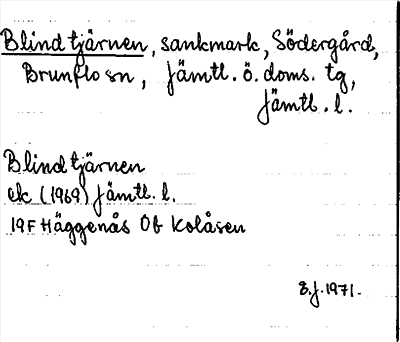 Blindtjärnen, sankmark, Södergård,
Brunflo sn, Jämtl. ö. doms. tg,
Jämtl. l.
Blindtjärnen
ek (1969) Jämtl. l.
19F Häggenås 0f Kolåsen
8.J.1971.